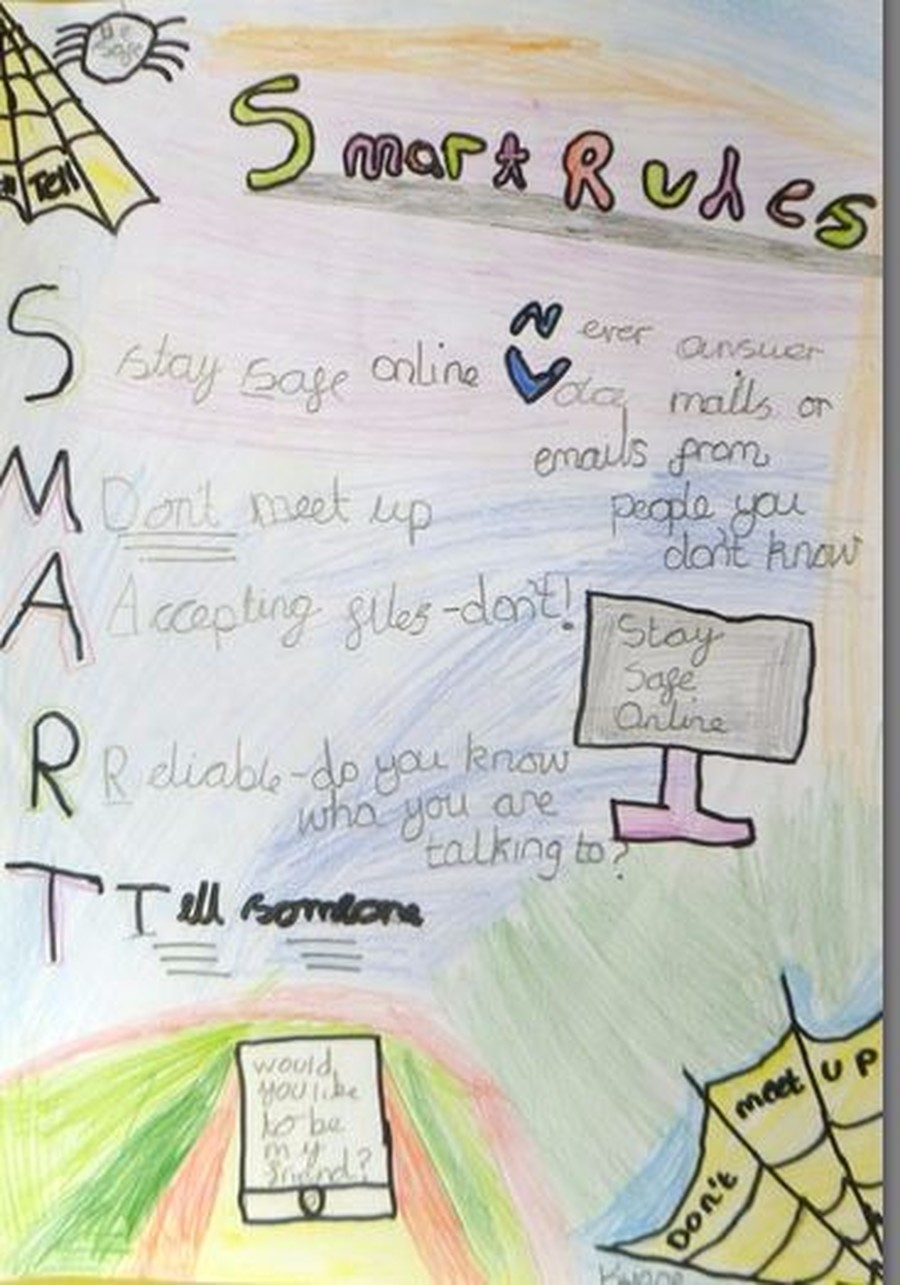 Be
Safe
Tell
Smart Rules
S
Stay Safe online
Never answer
mails or
emails from
people you
don't know
M
Don't meet up
A
Accepting files - don't!
Stay
Safe
Online
R
Reliable - do you know
who you are
talking to?
T
Tell someone
would
you like
to be
my
friend?
Don't meet up